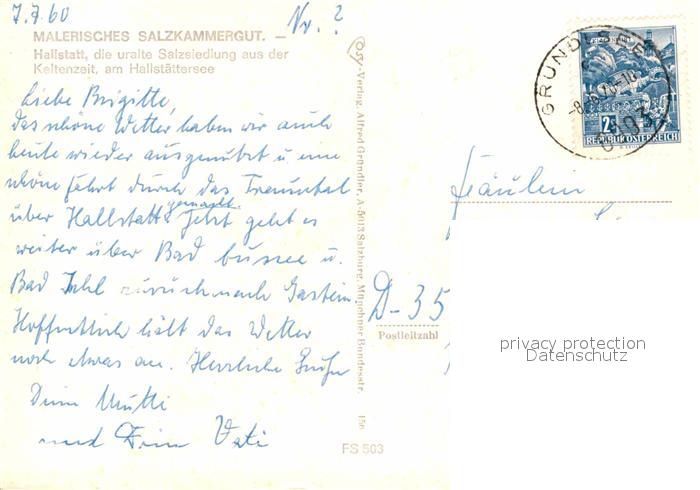 7.7.60
Nr. ?
MALERISCHES SALZKAMMERGUT. —
Hallstatt, die uralte Salzsiedlung aus der
Keltenzeit, am Hallstättersee
Liebe Brigitte,
das schöne Wetter haben wir auch
heute wieder ausgenutzt u eine
schöne Fahrt durch das Trauntal
über Hallstatt gemacht. Jetzt geht es
weiter über Bad Aussee u.
Bad Ischl zurück nach Gastein
Hoffentlich hält das Wetter
noch etwas an. Herzliche Grüße
Deine Mutti
und Dein Vati
Cosy-Verlag, Alfred Gründler, A-5013 Salzburg, Münchner Bundesstr.
FS 503
GRUNDLSEE
2S
REPUBLIK ÖSTERREICH
Fräulein
D-35
Postleitzahl
privacy protection
Datenschutz